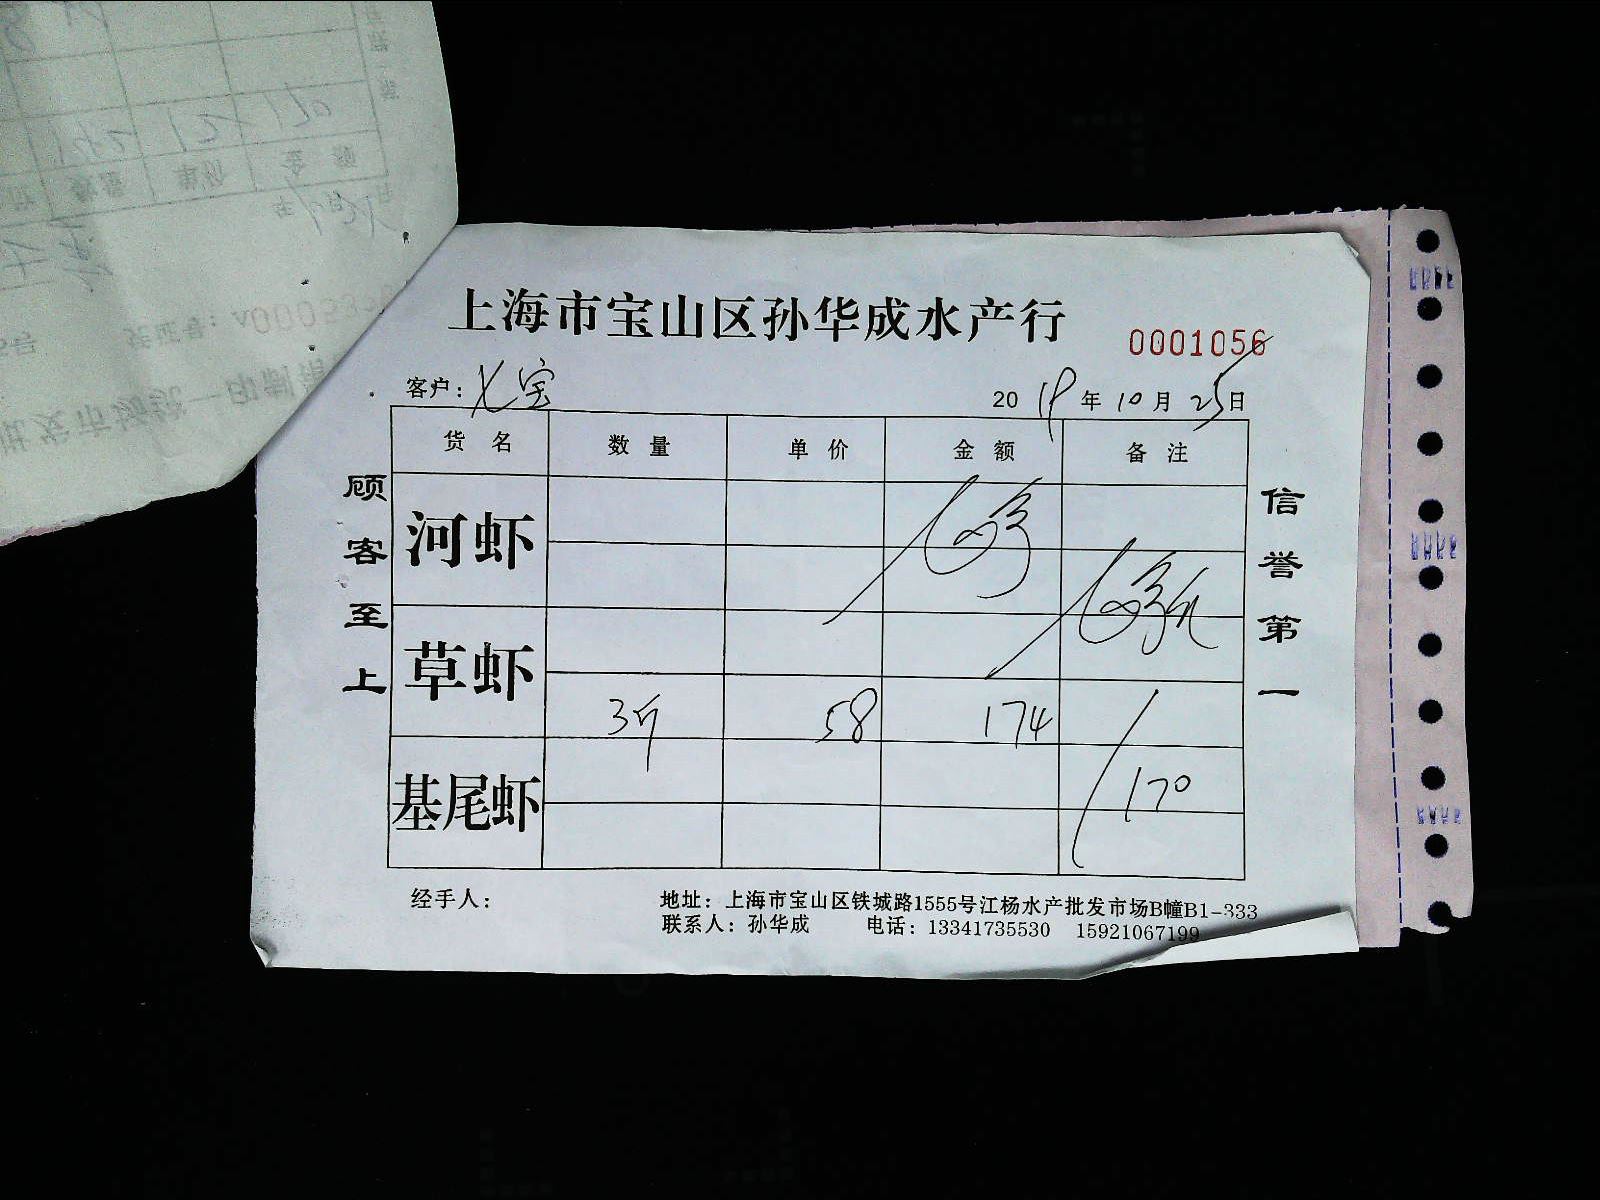 上海市宝山区孙华成水产行
0001056
客户：七宝
2018年10月25日
货名 数量 单价 金额 备注
顾客至上
河虾
草虾
3斤 58 174
170
基尾虾
信誉第一
经手人：
地址：上海市宝山区铁城路1555号江杨水产批发市场B幢B1-333
联系人：孙华成 电话：13341735530 15921067199